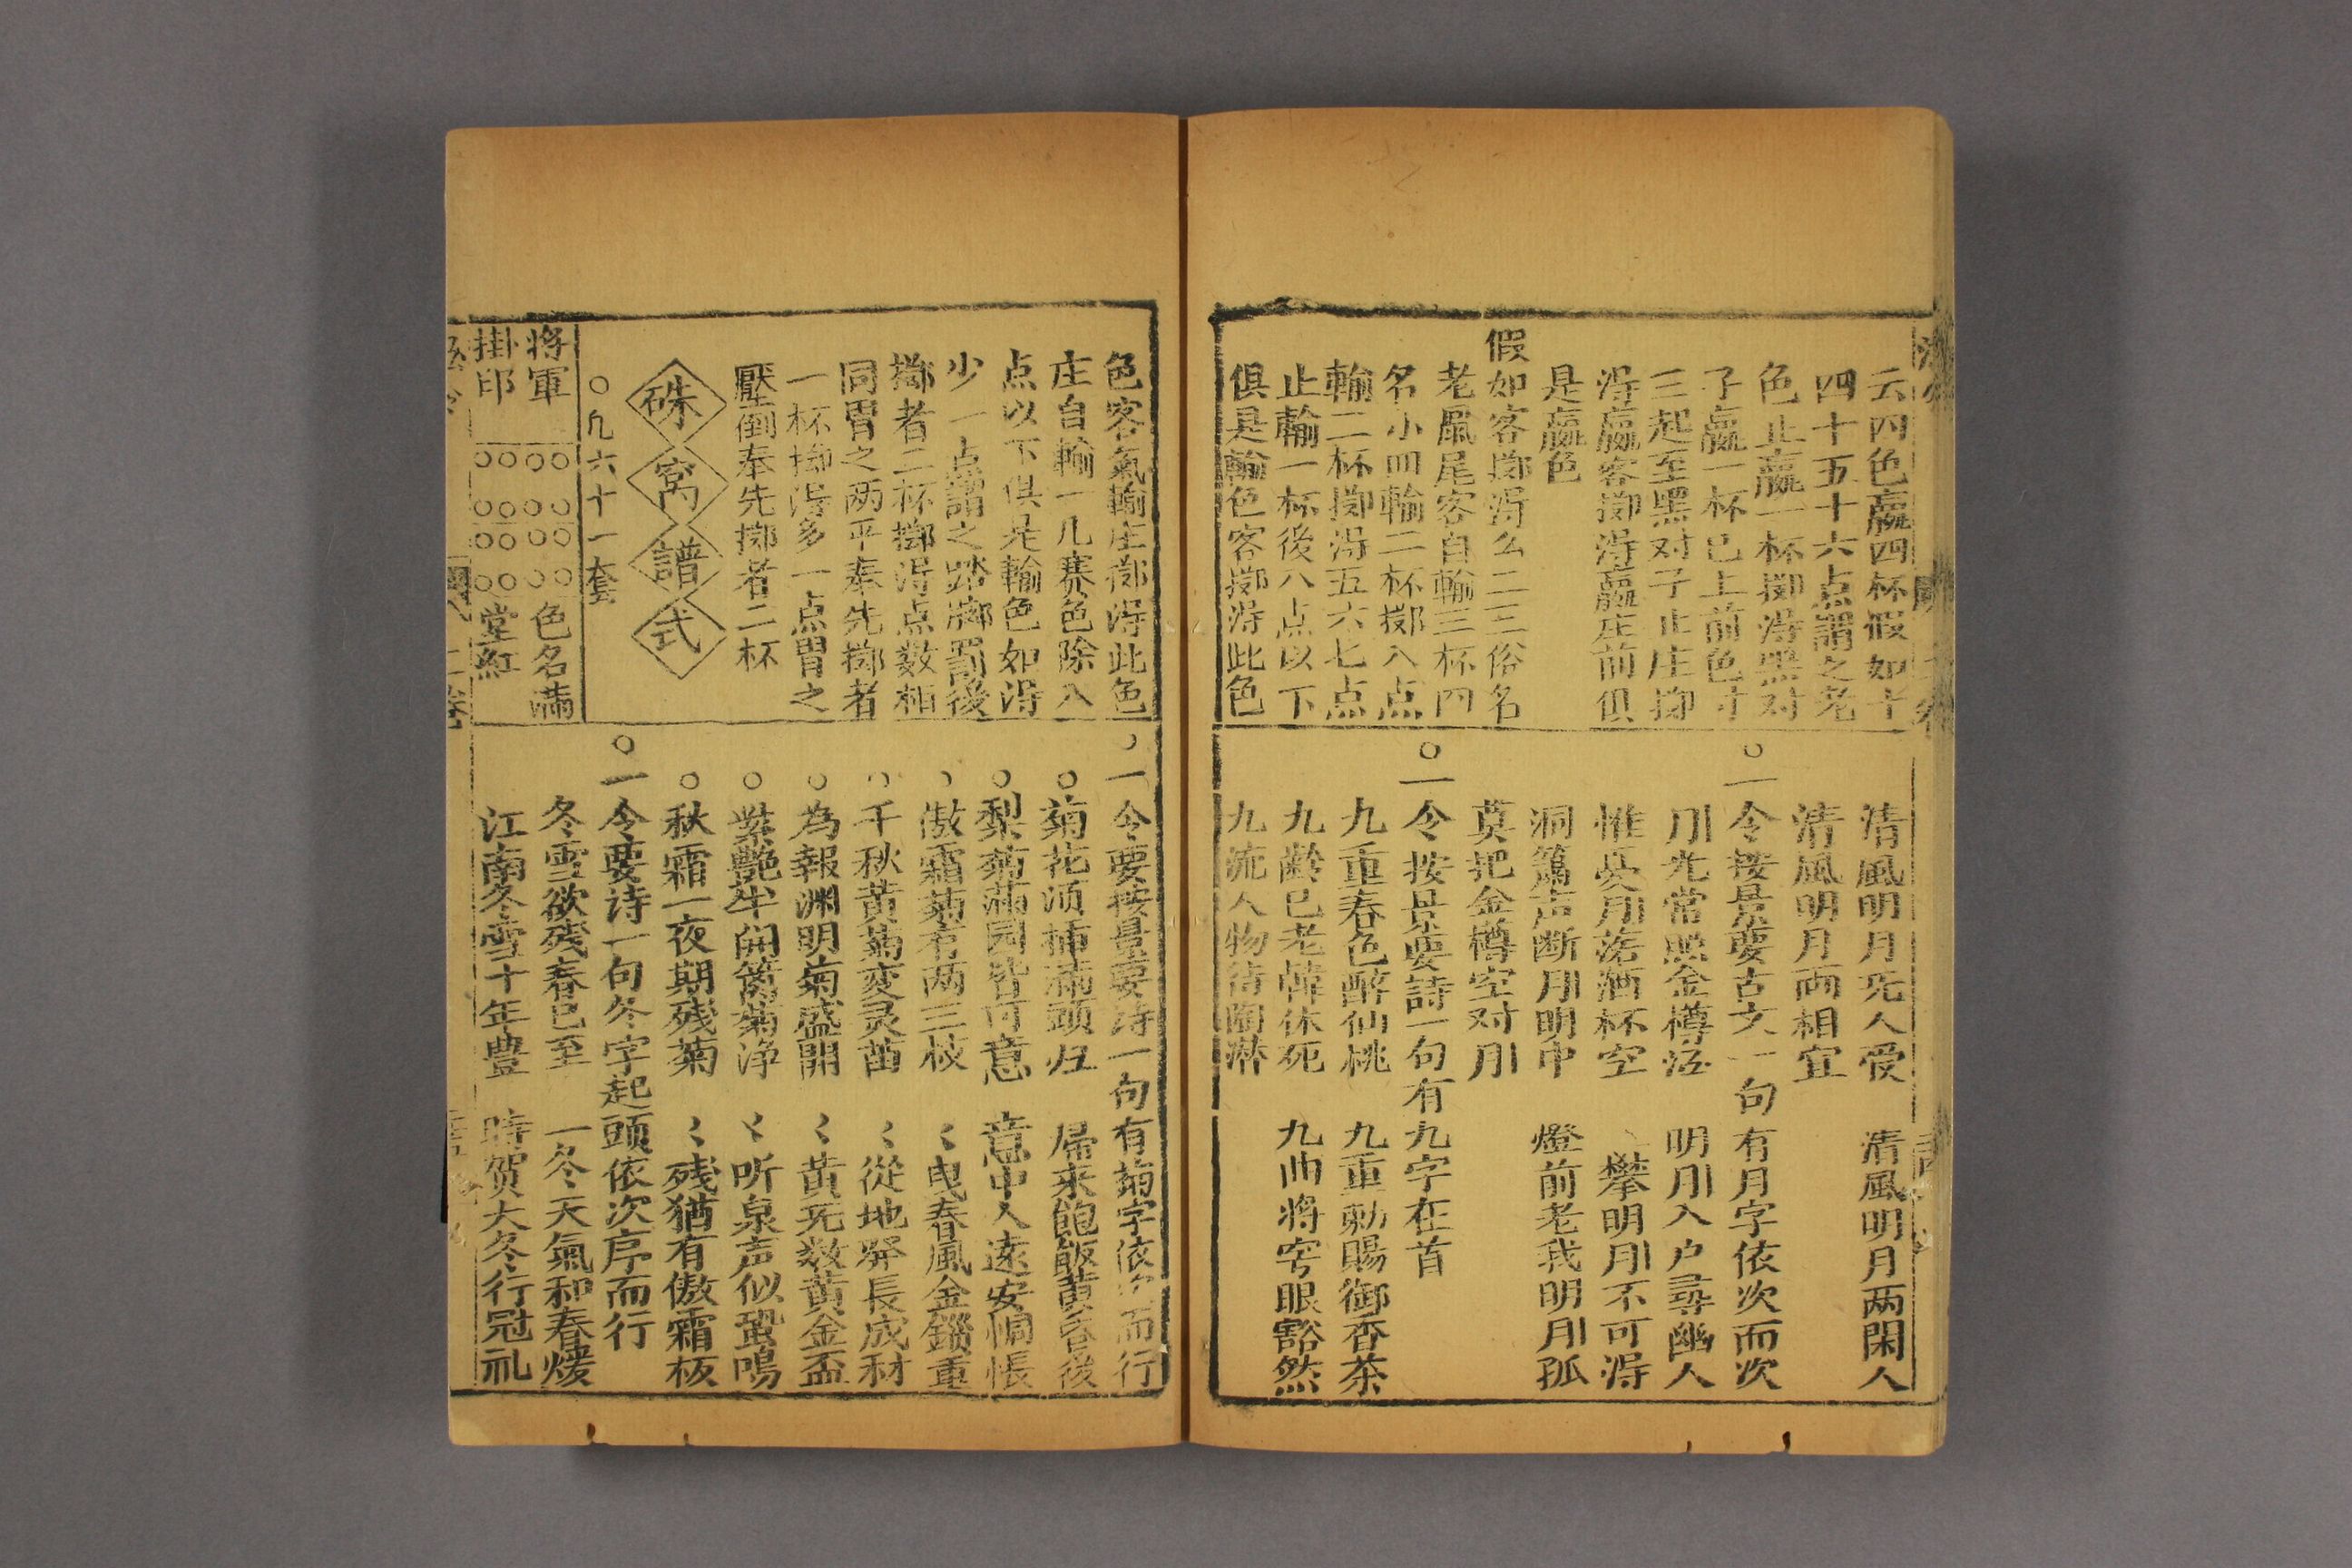 云四色贏四杯假如十
四十五十六点謂之老
色止贏一杯擲淂黑对
子贏一杯已上前色寸
三起至黑对子止庄擲
淂贏客擲淂贏庄前俱
是贏色
假如客擲淂么二三俗名
老鼠尾客自輸三杯四
名小四輸二杯擲八点
輸二杯擲淂五六七点
止輸一杯後八点以下
俱是輸色客擲淂此色
清風明月旡人受 清風明月两閑人
清風明月両相宜
○一令按景要古文一句有月字依次而次
月光常照金樽 明月入户尋幽人
惟㒷月落酒杯空 攀明月不可淂
洞簫声断月明中 燈前老我明月孤
莫把金樽空对月
○一令按景要詩一句有九字在首
九重春色醉仙桃 九重勅賜御香茶
九齡已老韓休死 九曲將穹眼豁然
九流人物待陶
色客氣輸庄擲淂此色
庄自輸一几赛色除八
点以下俱是輸色如淂
少一点謂之踏擲罰後
擲者二杯擲淂点数相
同謂之两平奉先擲者
一杯擲淂多一点謂之
壓倒奉先擲者二杯
硃窩譜式
○九六十一套
将軍 色名满
掛印 堂紅
○一令要按景要诗一句有菊字依次而行
○菊花湏插满頭归 㷌來飽飯黄昏後
○梨菊满园皆可意 意中人遠安惆悵
○傲霜菊有两三枝 〻曳春風金鎦重
○千秋黄菊変灵苗 〻從地㢡長成材
○為報渊明菊盛開 〻黄旡数黄金盃
○紫艶半開篱菊浄 〻听泉声似蛩鳴
○秋霜一夜期残菊 〻残猶有傲霜板
○一令要诗一句冬字起頭依次序而行
冬雪欲残春已至 一冬天氣和春煖
江南冬雪十年豊 時贺大冬行冠礼